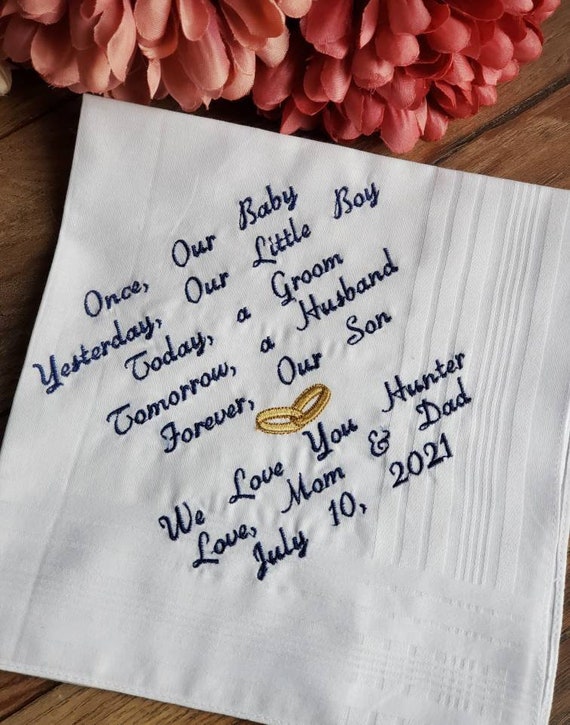 Once, Our Baby
Yesterday, Our Little Boy
Today, a Groom
Tomorrow, a Husband
Forever, Our Son
We Love You Hunter
Love, Mom & Dad
July 10, 2021